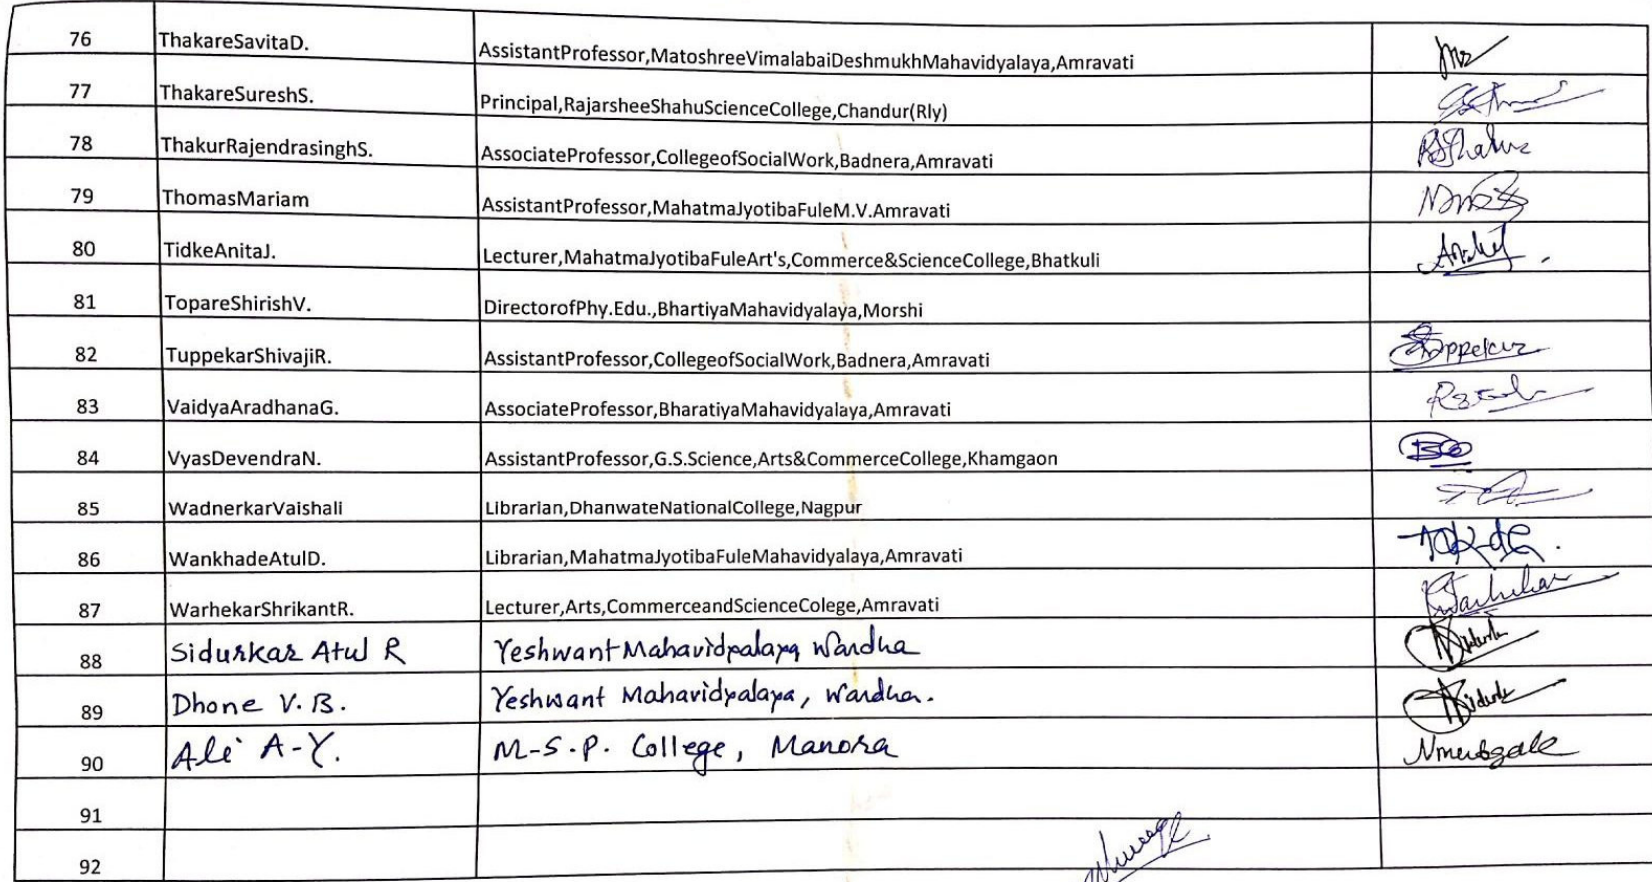 76 ThakareSavitaD. AssistantProfessor,MatoshreeVimalabaiDeshmukhMahavidyalaya,Amravati
77 ThakareSureshS. Principal,RajarsheeShahuScienceCollege,Chandur(Rly)
78 ThakurRajendrasinghS. AssociateProfessor,CollegeofSocialWork,Badnera,Amravati
79 ThomasMariam AssistantProfessor,MahatmaJyotibaFuleM.V.Amravati
80 TidkeAnitaJ. Lecturer,MahatmaJyotibaFuleArt's,Commerce&ScienceCollege,Bhatkuli
81 TopareShirishV. DirectorofPhy.Edu.,BhartiyaMahavidyalaya,Morshi
82 TuppekarShivajiR. AssistantProfessor,CollegeofSocialWork,Badnera,Amravati
83 VaidyaAradhanaG. AssociateProfessor,BharatiyaMahavidyalaya,Amravati
84 VyasDevendraN. AssistantProfessor,G.S.Science,Arts&CommerceCollege,Khamgaon
85 WadnerkarVaishali Librarian,DhanwateNationalCollege,Nagpur
86 WankhadeAtulD. Librarian,MahatmaJyotibaFuleMahavidyalaya,Amravati
87 WarhekarShrikantR. Lecturer,Arts,CommerceandScienceColege,Amravati
88 Sidurkar Atul R Yeshwant Mahavidyalaya Wardha
89 Dhone V.B. Yeshwant Mahavidyalaya, Wardha.
90 Ali A-Y. M-S.P. College, Manora
91
92